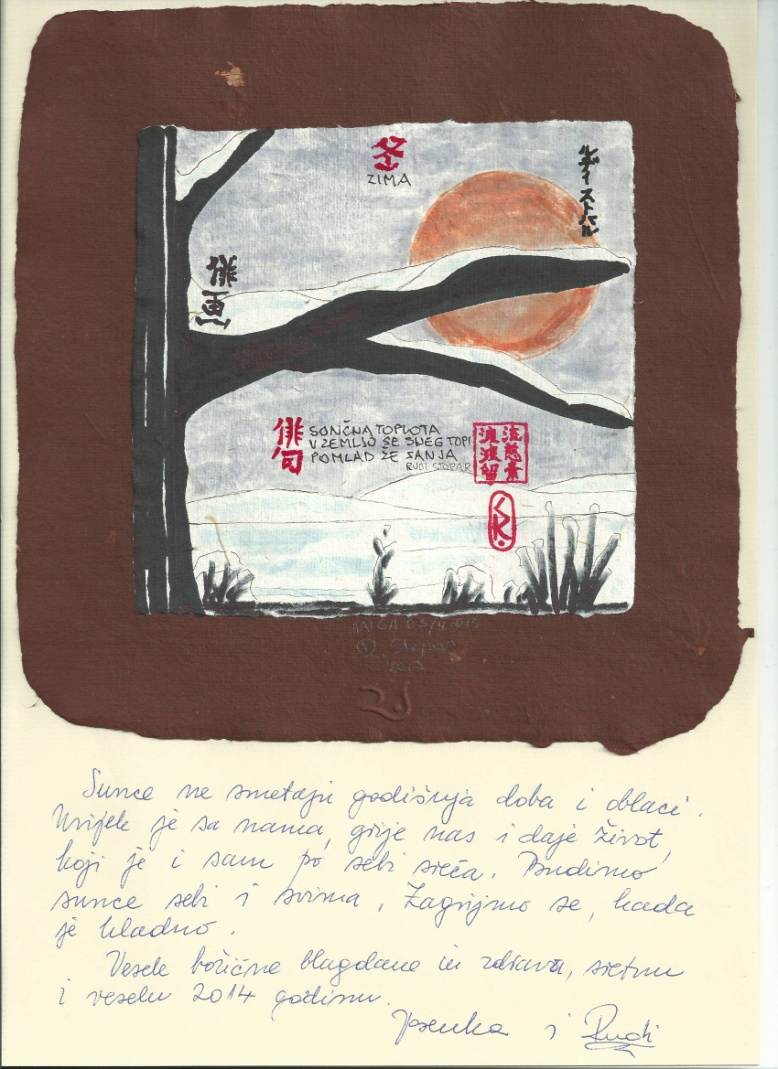 冬
ZIMA
ルディ ストパル
俳画
俳句
SONČNA TOPLOTA
V ZEMLJO SE SNEG TOPI
POMLAD ŽE SANJA
RUDI STOPAR
HAIGA
2013
Sunce ne smetaju godišnja doba i oblaci.
Uvijek je sa nama, grije nas i daje život,
koji je i sam po sebi sreća. Budimo
sunce sebi i svima. Zagrijmo se, kada
je hladno.
Vesele božične blagdane in zdravu, sretnu
i veselu 2014 godinu.
Jasenka i Rudi